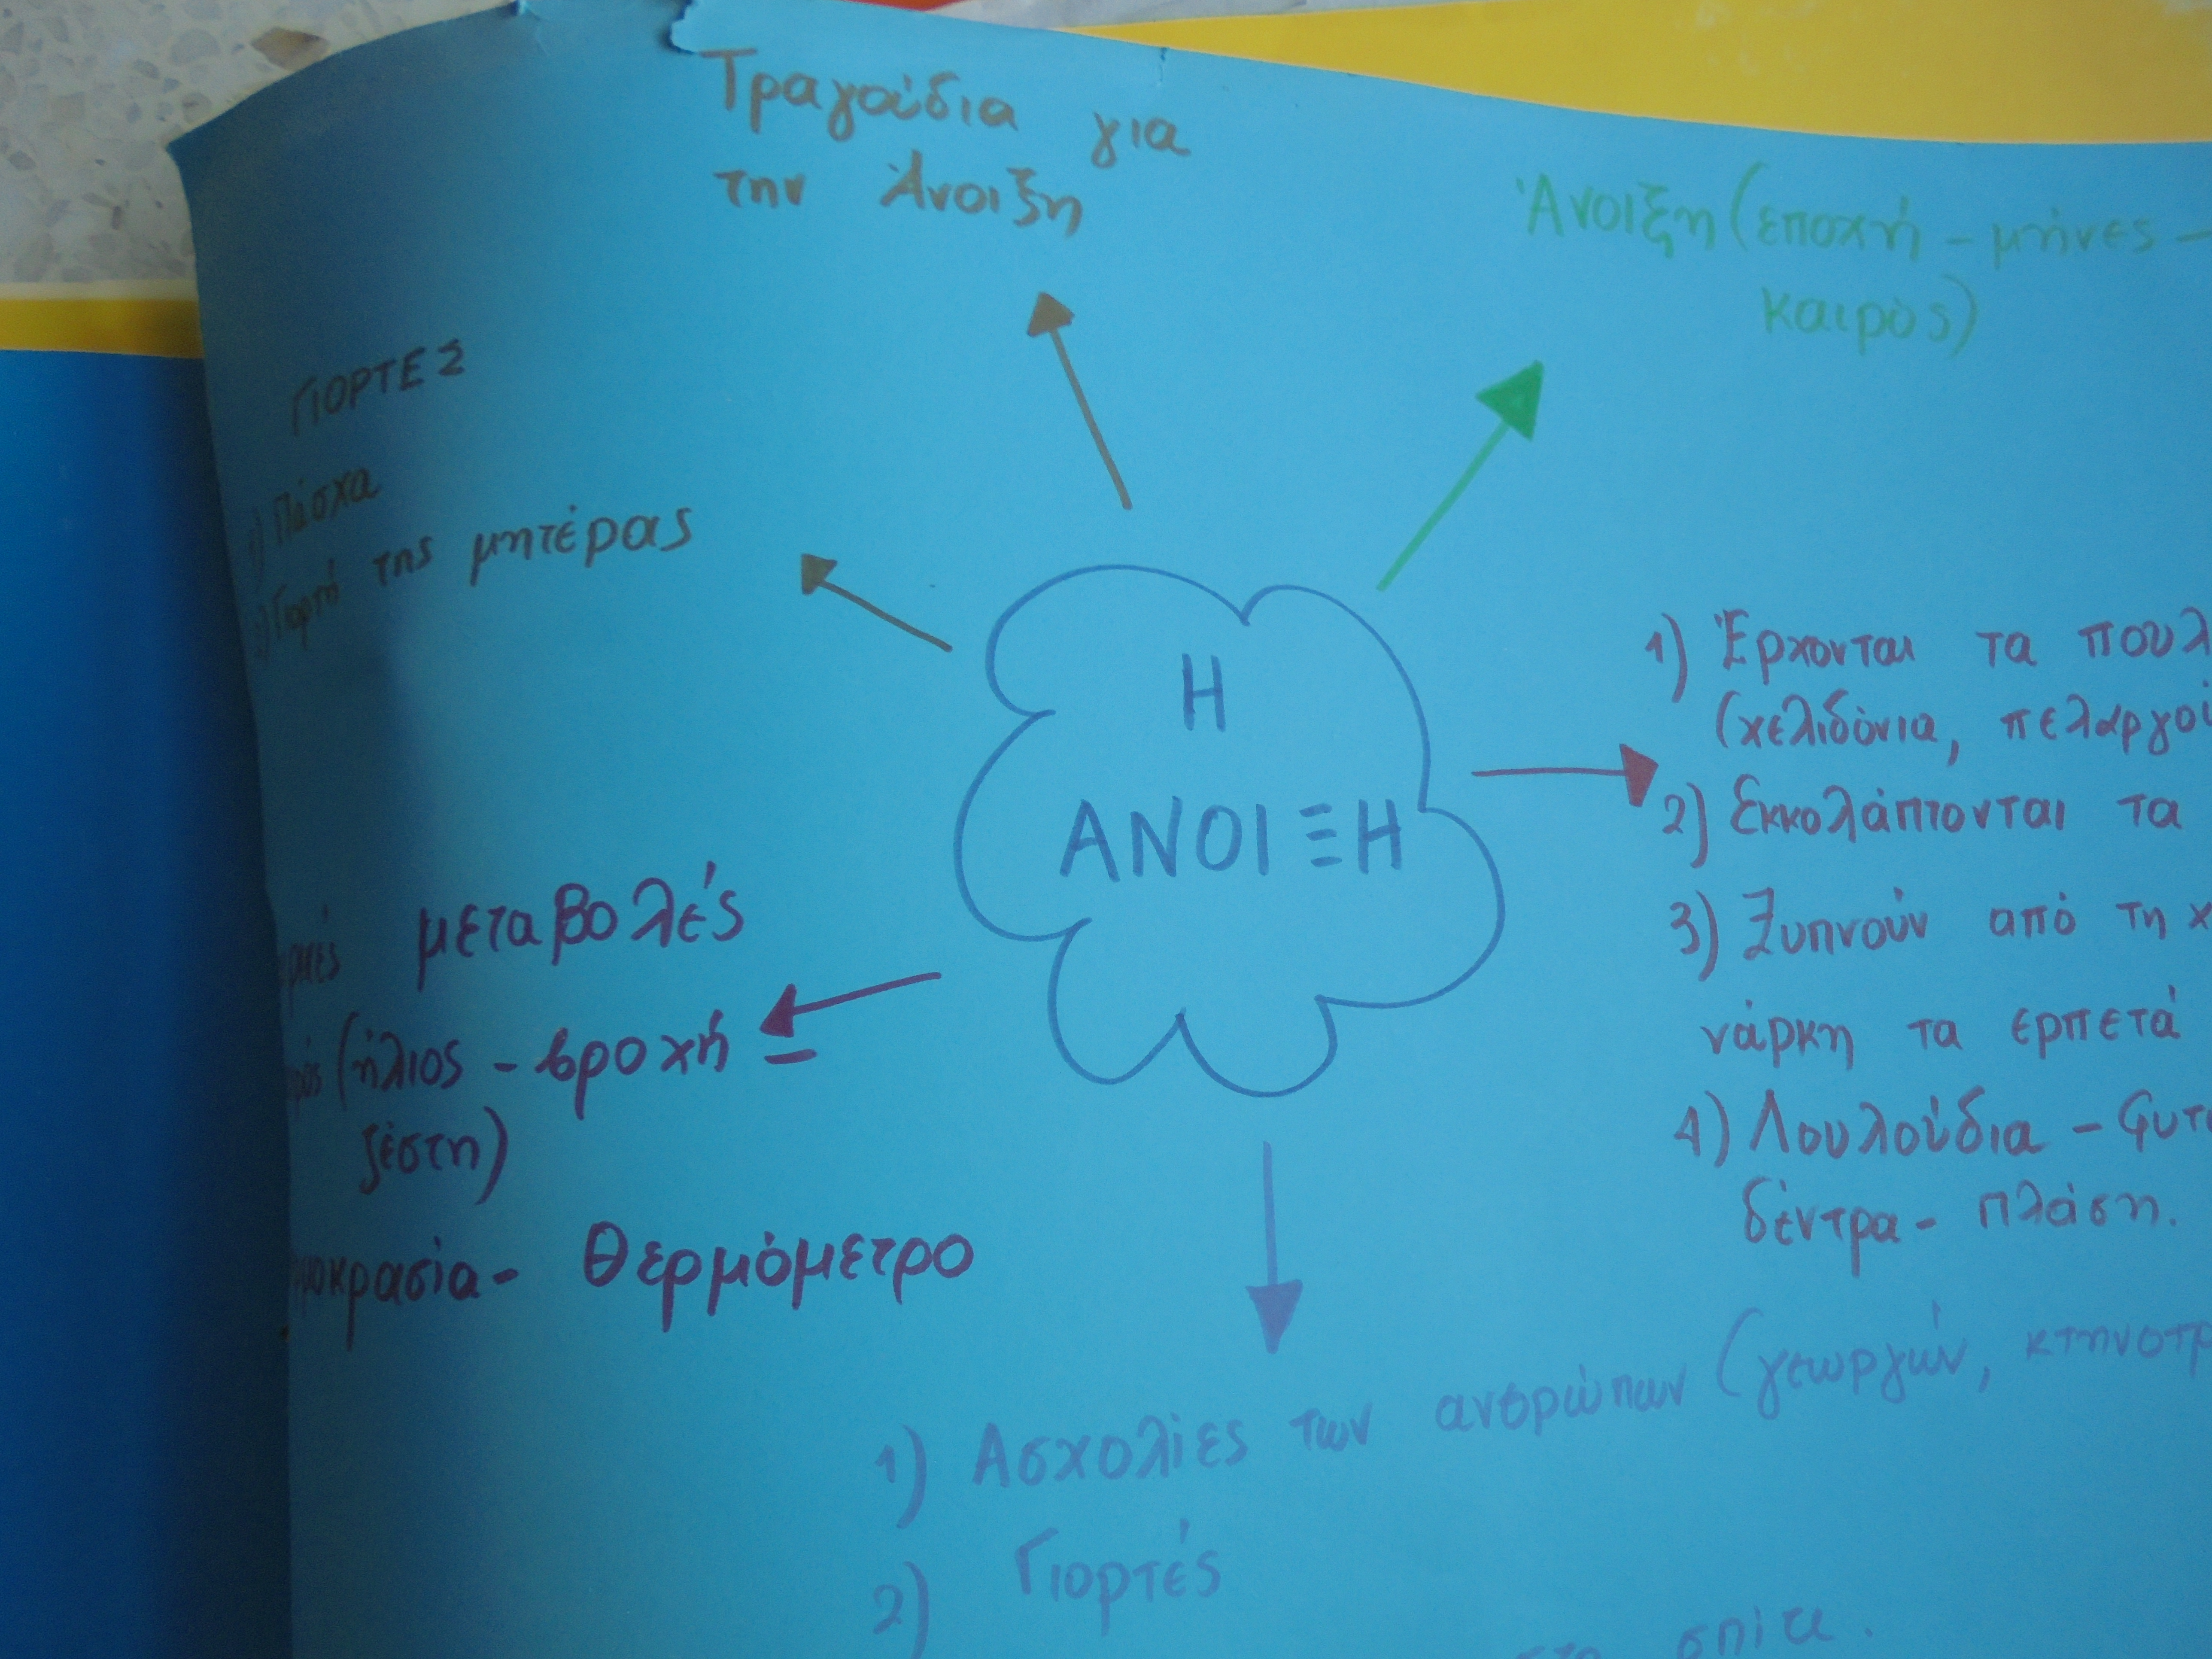 Τραγούδια για
την Άνοιξη
Άνοιξη (εποχή - μήνες -
καιρός)
ΓΙΟΡΤΕΣ
1) Πάσχα
2) Γιορτή της μητέρας
Η
ΑΝΟΙΞΗ
1) Έρχονται τα πουλ
(χελιδόνια, πελαργοί
2) Εκκολάπτονται τα
3) Ξυπνούν από τη χ
νάρκη τα ερπετά
4) Λουλούδια - φυτ
δέντρα - πλάση.
μεταβολές
(ήλιος - βροχή -
ζέστη)
μοκρασία - Θερμόμετρο
1) Ασχολίες των ανθρώπων (γεωργών, κτηνοτρ
2) Γιορτές
σπίτι.